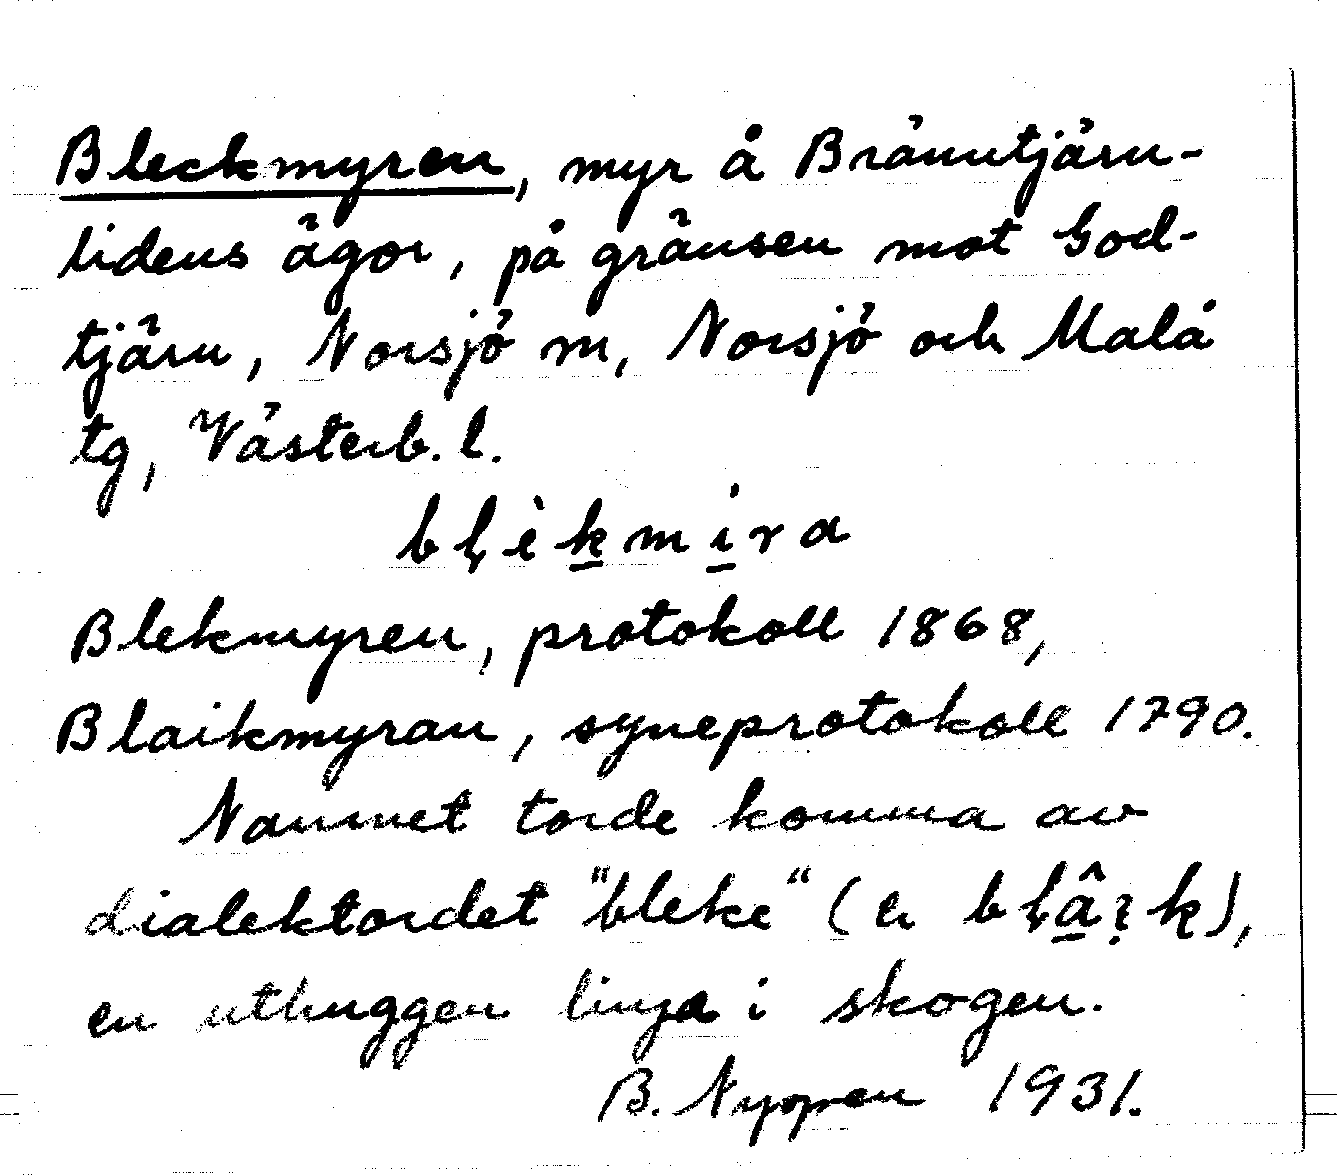 Bleckmyren, myr å Bränntjärn-
lidens ägor, på gränsen mot God-
tjärn, Norsjö m, Norsjö och Malå
tg, Västerb. l.
bḷèk̲mi̲ra
Blekmyren, protokoll 1868,
Blaikmyran, syneprotokoll 1790.
Namnet torde komma av
dialektordet "bleke" (en
en uthuggen linja i skogen.
B. Nyopen 1931.